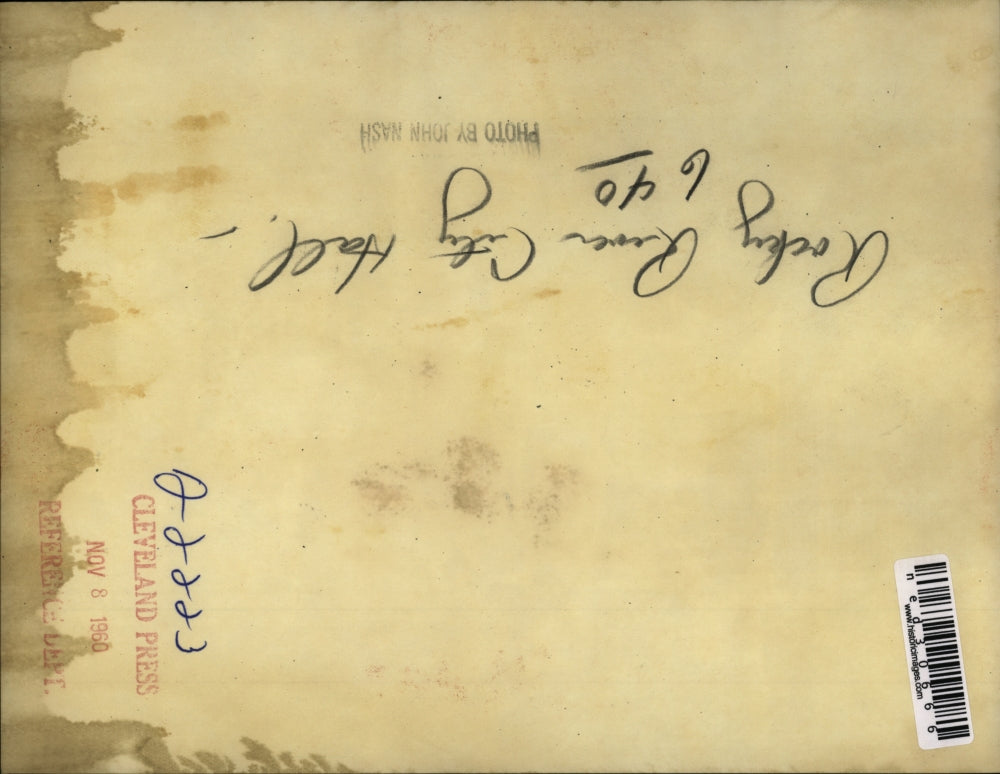 PHOTO BY JOHN NASH
640
Rocky River City Hall. -
CLEVELAND PRESS
NOV 8 1960
REFERENCE DEPT.
ned30666
www.historicimages.com